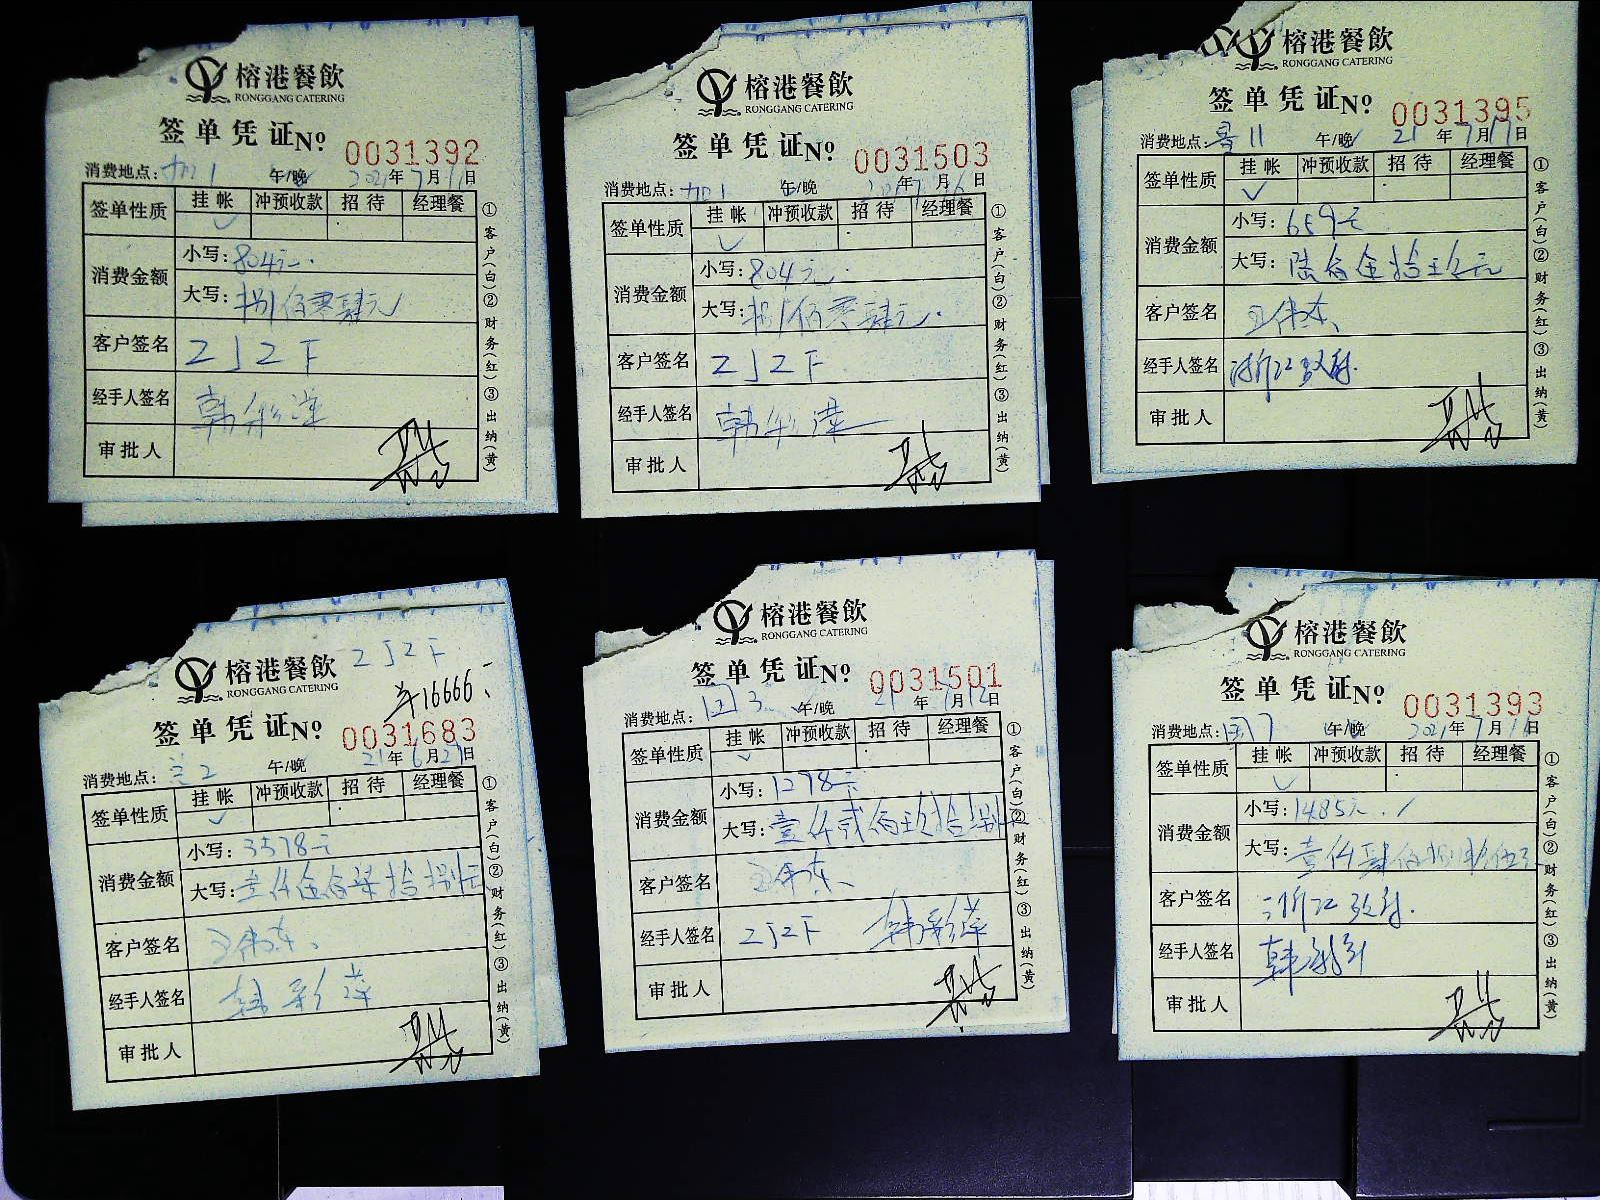 榕港餐飲
RONGGANG CATERING
签单凭证No 0031392
消费地点: 加1 午/晚 2021年7月11日
签单性质 挂帐 冲预收款 招待 经理餐
消费金额 小写: 804元
大写: 捌佰零肆元
客户签名 ZJZF
经手人签名 韩彩萍
审批人
①客户(白)②财务(红)③出纳(黄)
榕港餐飲
RONGGANG CATERING
签单凭证No 0031503
消费地点: 加1 午/晚 年 月 日
签单性质 挂帐 冲预收款 招待 经理餐
消费金额 小写: 804元
大写: 捌佰零肆元
客户签名 ZJZF
经手人签名 韩彩萍
审批人
①客户(白)②财务(红)③出纳(黄)
榕港餐飲
RONGGANG CATERING
签单凭证No 0031395
消费地点: 11 午/晚 21年7月17日
签单性质 挂帐 冲预收款 招待 经理餐
消费金额 小写: 659元
大写: 陆佰伍拾玖元
客户签名
经手人签名 浙江政府
审批人
①客户(白)②财务(红)③出纳(黄)
榕港餐飲 ZJZF
RONGGANG CATERING
16666
签单凭证No 0031683
消费地点: 兰2 午/晚 21年6月27日
签单性质 挂帐 冲预收款 招待 经理餐
消费金额 小写: 3578元
大写: 叁仟伍佰柒拾捌元
客户签名
经手人签名 韩彩萍
审批人
①客户(白)②财务(红)③出纳(黄)
榕港餐飲
RONGGANG CATERING
签单凭证No 0031501
消费地点: 3 午/晚 21年7月12日
签单性质 挂帐 冲预收款 招待 经理餐
消费金额 小写: 1298元
大写: 壹仟贰佰玖拾捌
客户签名
经手人签名 ZJZF 韩彩萍
审批人
①客户(白)②财务(红)③出纳(黄)
榕港餐飲
RONGGANG CATERING
签单凭证No 0031393
消费地点: 7 午/晚 2021年7月 日
签单性质 挂帐 冲预收款 招待 经理餐
消费金额 小写: 1485元
大写: 壹仟肆佰捌拾伍元
客户签名 浙江政府
经手人签名 韩
审批人
①客户(白)②财务(红)③出纳(黄)